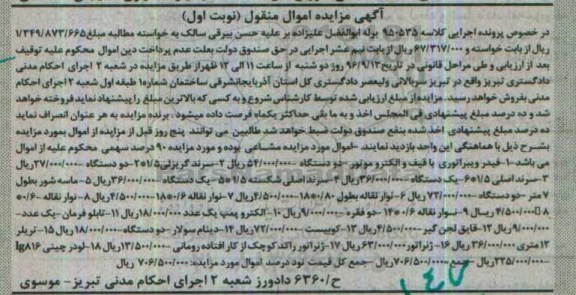 آگهی مزایده اموال منقول (نوبت اول)
در خصوص پرونده اجرایی کلاسه ۹۵۰۵۳۵ برله ابوالفضل علیزاده بر علیه حسن بیرقی سالک به خواسته مطالبه مبلغ ۱/۳۴۹/۸۷۳/۶۶۵
ریال از بابت خواسته و ۶۷/۳۱۷/۰۰۰ ریال از بابت نیم عشر اجرایی در حق صندوق دولت بعلت عدم پرداخت دین اموال محکوم علیه توقیف
بعد از ارزیابی و طی مراحل قانونی در تاریخ ۹۶/۹/۱۳ روز دو شنبه از ساعت ۱۱ الی ۱۲ ظهر از طریق مزایده در شعبه ۲ اجرای احکام مدنی
دادگستری تبریز واقع در تبریز سربالائی ولیعصر دادگستری کل استان آذربایجانشرقی ساختمان شماره۱ طبقه اول شعبه ۲ اجرای احکام
مدنی بفروش خواهد رسید. مزایده از مبلغ ارزیابی شده توسط کارشناس شروع و به کسی که بالاترین مبلغ را پیشنهاد نماید فروخته خواهد
شد و ده درصد مبلغ پیشنهادی فی المجلس اخذ و به ما بقی حداکثر یکماه فرصت داده میشود. برنده مزایده به هر عنوان انصراف نماید
ده درصد مبلغ پیشنهادی اخذ شده بنفع صندوق دولت ضبط خواهد شد طالبین می توانند پنج روز قبل از مزایده از اموال بمورد مزایده
بشرح ذیل با هماهنگی این واحد بازدید نمایند -اموال مورد مزایده مشاعی بوده و مورد مزایده ۹۰ درصد سهمی محکوم علیه از اموال
می باشد-۱-فیدر ویبراتوری با قیف و الکترو موتور -دو دستگاه -۵۴/۰۰۰/۰۰۰ ریال ۲-سرند گریزلی ۲۰۱/۵-دو دستگاه -۲۷/۰۰۰/۰۰۰ریال
۳-سرند اصلی ۶۰۱/۵-یک دستگاه -۳۶/۰۰۰/۰۰۰ریال ۴-سرند اصلی شکسته ۵۰۱/۵-یک دستگاه -۳۶/۰۰۰/۰۰۰ریال ۵- ماسه شور بطول
۷متر -دو دستگاه -۷۲/۰۰۰/۰۰۰ ریال ۶-نوار نقاله بطول ۱۸۰۰/۸۰-۴/۵۰۰/۰۰۰ریال ۷-نوار نقاله ۱۸۰۰/۶-۴/۵۰۰/۰۰۰ریال ۸-نوار نقاله
۴/۵۰۰/۰۰۰ ریال ۹-نوار نقاله -دو فقره -۹/۰۰۰/۰۰۰ریال ۱۰-الکترو پمپ یک عدد -۱۸/۰۰۰/۰۰۰ریال ۱۱-تابلو فرمان -یک عدد-
۹/۰۰۰/۰۰۰ریال ۱۲-قایق لجن گیر -۴/۵۰۰/۰۰۰ریال ۱۳-کوبیست -۷۲/۰۰۰/۰۰۰ریال ۱۴-دینام سولار -دو دستگاه -۱۸/۰۰۰/۰۰۰ریال ۱۵-تریلر
۱۲ متری -۳۶/۰۰۰/۰۰۰ ریال ۱۶-ژنراتور -۶۳/۰۰۰/۰۰۰ریال ۱۷-ژنراتور راکد کوچک از کار افتاده رومانی -۱۳/۵۰۰/۰۰۰ریال ۱۸-لودر چینی lg۸۱۶
-۲۲۵/۰۰۰/۰۰۰ریال -جمع -۷۰۶/۵۰۰/۰۰۰ریال -جمع کل قیمت نود درصد اموال مورد مزایده: ۷۰۶/۵۰۰/۰۰۰ ریال
ح/۶۳۶۰ دادورز شعبه ۲ اجرای احکام مدنی تبریز- موسوی